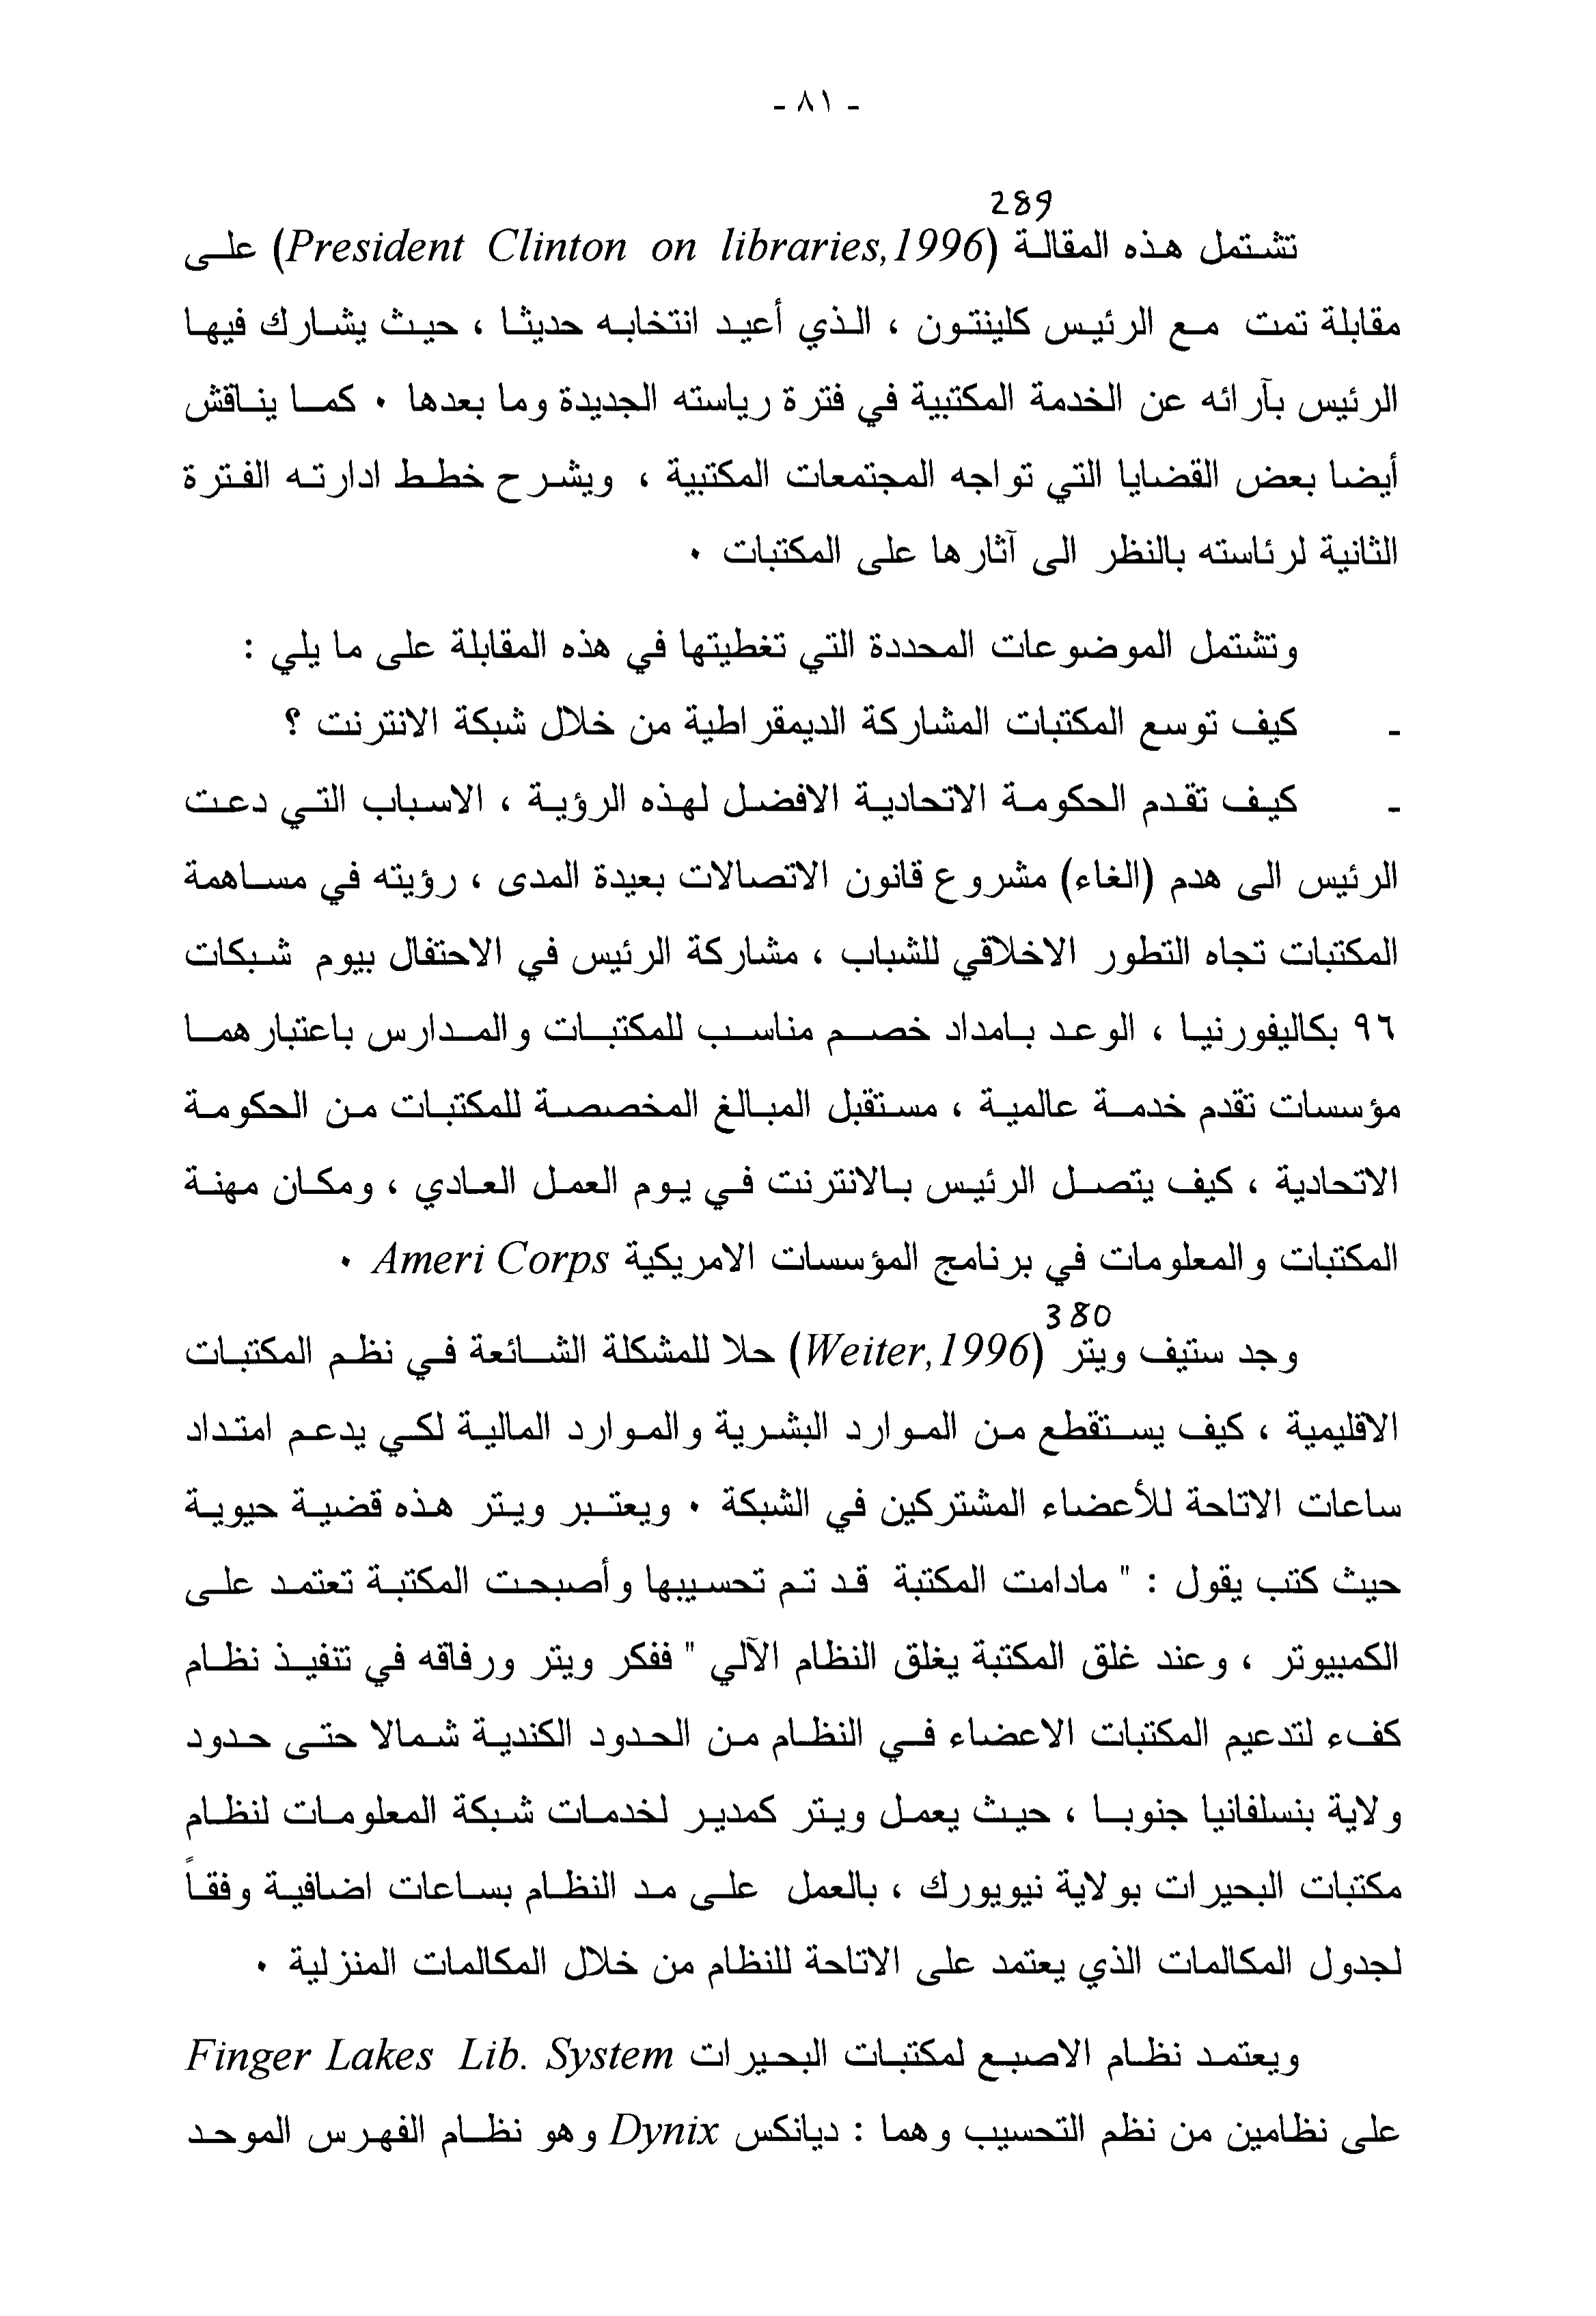 - ٨١ -
289
تشتمل هذه المقالة (President Clinton on libraries,1996) على
مقابلة تمت مع الرئيس كلينتون ، الذي أعيد انتخابه حديثا ، حيث يشارك فيها
الرئيس بآرائه عن الخدمة المكتبية في فترة رياسته الجديدة وما بعدها ٠ كما يناقش
أيضا بعض القضايا التي تواجه المجتمعات المكتبية ، ويشرح خطط ادارته الفترة
الثانية لرئاسته بالنظر الى آثارها على المكتبات ٠
وتشتمل الموضوعات المحددة التي تغطيتها في هذه المقابلة على ما يلي :
- كيف توسع المكتبات المشاركة الديمقراطية من خلال شبكة الانترنت ؟
- كيف تقدم الحكومة الاتحادية الافضل لهذه الرؤية ، الاسباب التي دعت
الرئيس الى هدم (الغاء) مشروع قانون الاتصالات بعيدة المدى ، رؤيته في مساهمة
المكتبات تجاه التطور الاخلاقي للشباب ، مشاركة الرئيس في الاحتفال بيوم شبكات
٩٦ بكاليفورنيا ، الوعد بامداد خصم مناسب للمكتبات والمدارس باعتبارهما
مؤسسات تقدم خدمة عالمية ، مستقبل المبالغ المخصصة للمكتبات من الحكومة
الاتحادية ، كيف يتصل الرئيس بالانترنت في يوم العمل العادي ، ومكان مهنة
المكتبات والمعلومات في برنامج المؤسسات الامريكية Ameri Corps ٠
380
وجد ستيف ويتر (Weiter,1996) حلا للمشكلة الشائعة في نظم المكتبات
الاقليمية ، كيف يستقطع من الموارد البشرية والموارد المالية لكي يدعم امتداد
ساعات الاتاحة للأعضاء المشتركين في الشبكة ٠ ويعتبر ويتر هذه قضية حيوية
حيث كتب يقول : " مادامت المكتبة قد تم تحسيبها وأصبحت المكتبة تعتمد على
الكمبيوتر ، وعند غلق المكتبة يغلق النظام الآلي " ففكر ويتر ورفاقه في تنفيذ نظام
كفء لتدعيم المكتبات الاعضاء في النظام من الحدود الكندية شمالا حتى حدود
ولاية بنسلفانيا جنوبا ، حيث يعمل ويتر كمدير لخدمات شبكة المعلومات لنظام
مكتبات البحيرات بولاية نيويورك ، بالعمل على مد النظام بساعات اضافية وفقاً
لجدول المكالمات الذي يعتمد على الاتاحة للنظام من خلال المكالمات المنزلية ٠
ويعتمد نظام الاصبع لمكتبات البحيرات Finger Lakes Lib. System
على نظامين من نظم التحسيب وهما : ديانكس Dynix وهو نظام الفهرس الموحد